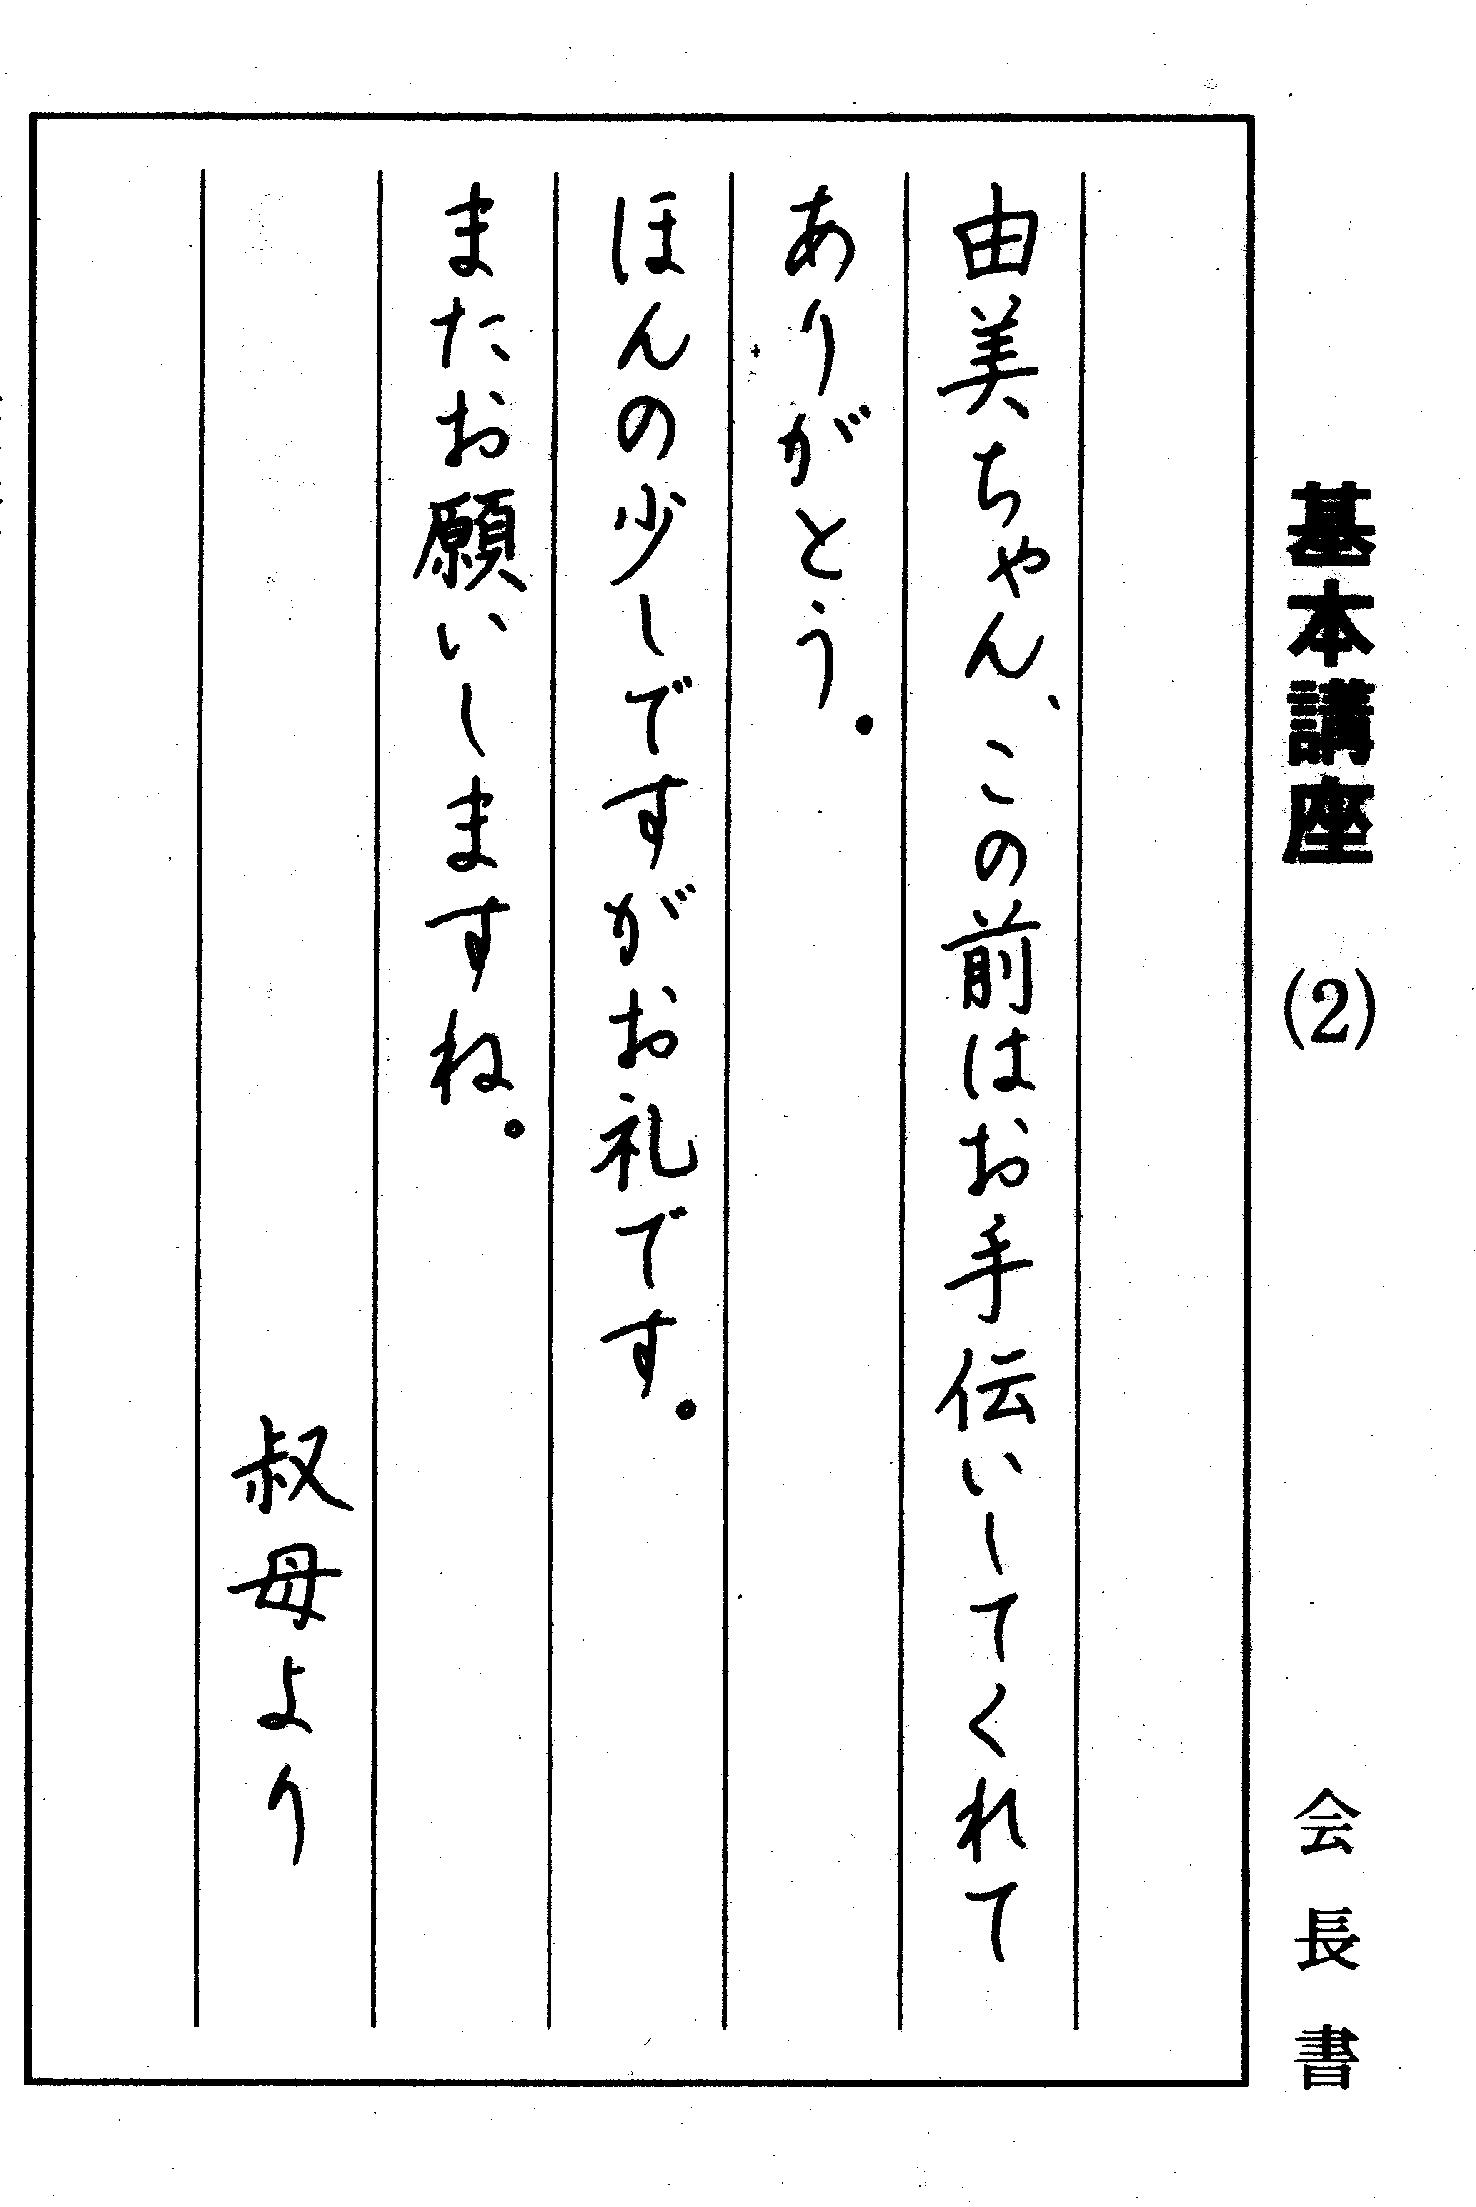 基本講座 (2)
会長書
由美ちゃん、この前はお手伝いしてくれて
ありがとう。
ほんの少しですがお礼です。
またお願いしますね。
叔母より